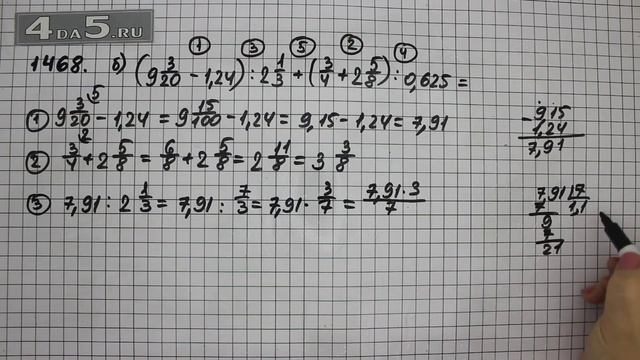 4DA5.RU
① ③ ⑤ ② ④
1468. б) (9 3/20 - 1,24) : 2 1/3 + (3/4 + 2 5/8) : 0,625 =
① 9 3/20 ⁵ - 1,24 = 9 15/100 - 1,24 = 9,15 - 1,24 = 7,91
② 3/4 ² + 2 5/8 = 6/8 + 2 5/8 = 2 11/8 = 3 3/8
③ 7,91 : 2 1/3 = 7,91 : 7/3 = 7,91 · 3/7 = 7,91·3/7
- 9,15
1,24
7,91
7,91 7
7 1,1
9
7
21